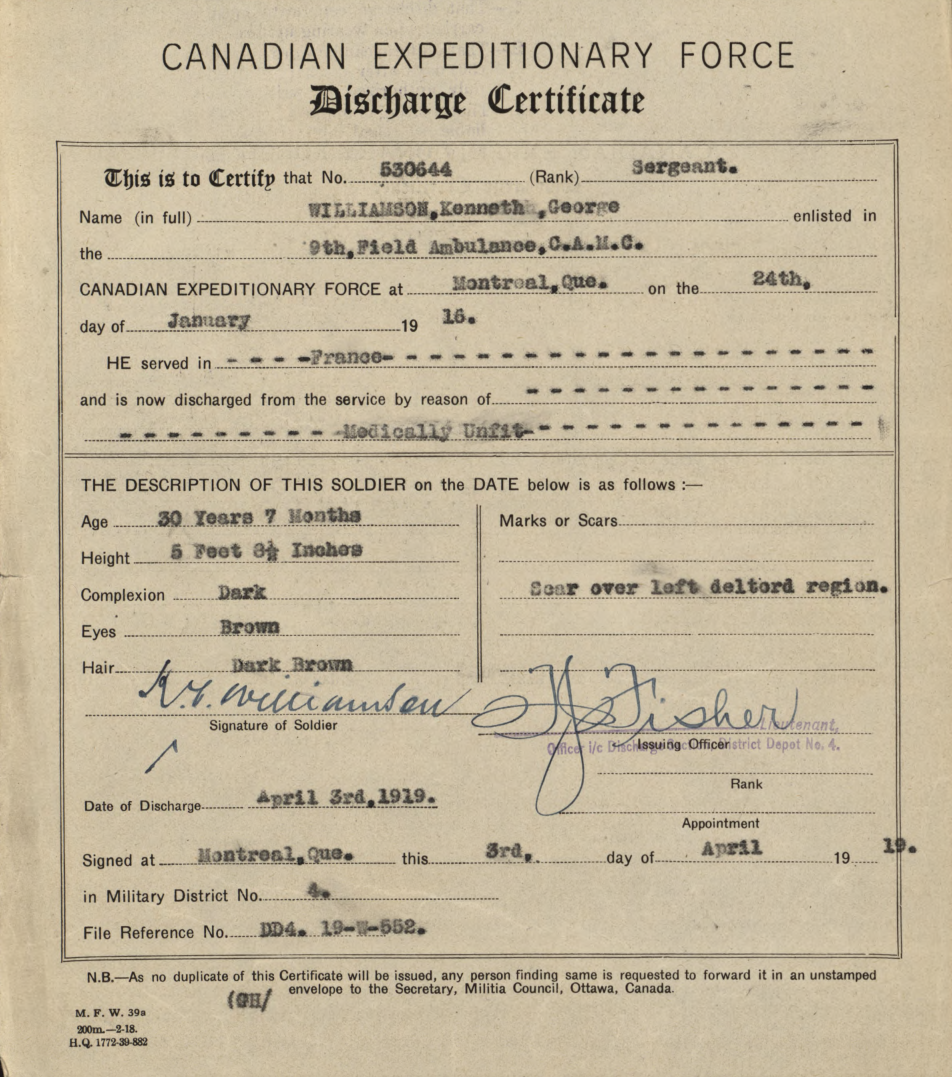 CANADIAN EXPEDITIONARY FORCE
Discharge Certificate
This is to Certify that No. 530644 (Rank) Sergeant.
Name (in full) WILLIAMSON,Kenneth ,George enlisted in
the 9th,Field Ambulance,C.A.M.C.
CANADIAN EXPEDITIONARY FORCE at Montreal,Que. on the 24th,
day of January 19 16.
HE served in - - - -France- - - - - - - - - - - - - - - - - - - -
and is now discharged from the service by reason of - - - - - - - - - - - - - -
- - - - - - - - - -Medically Unfit- - - - - - - - - - - - - -
THE DESCRIPTION OF THIS SOLDIER on the DATE below is as follows :—
Age 30 Years 7 Months
Height 5 Feet 8½ Inches
Complexion Dark
Eyes Brown
Hair Dark Brown
Marks or Scars
Scar over left deltord region.
K.G. Williamson
Signature of Soldier
Fisher
Lieutenant,
Issuing Officer
Officer i/c Discharge Section, District Depot No. 4.
Rank
Date of Discharge April 3rd,1919.
Appointment
Signed at Montreal,Que. this 3rd,. day of April 19 19.
in Military District No. 4.
File Reference No. DD4. 19-W-552.
N.B.—As no duplicate of this Certificate will be issued, any person finding same is requested to forward it in an unstamped
envelope to the Secretary, Militia Council, Ottawa, Canada.
(GH/
M. F. W. 39a
200m.—2-18.
H.Q. 1772-39-882